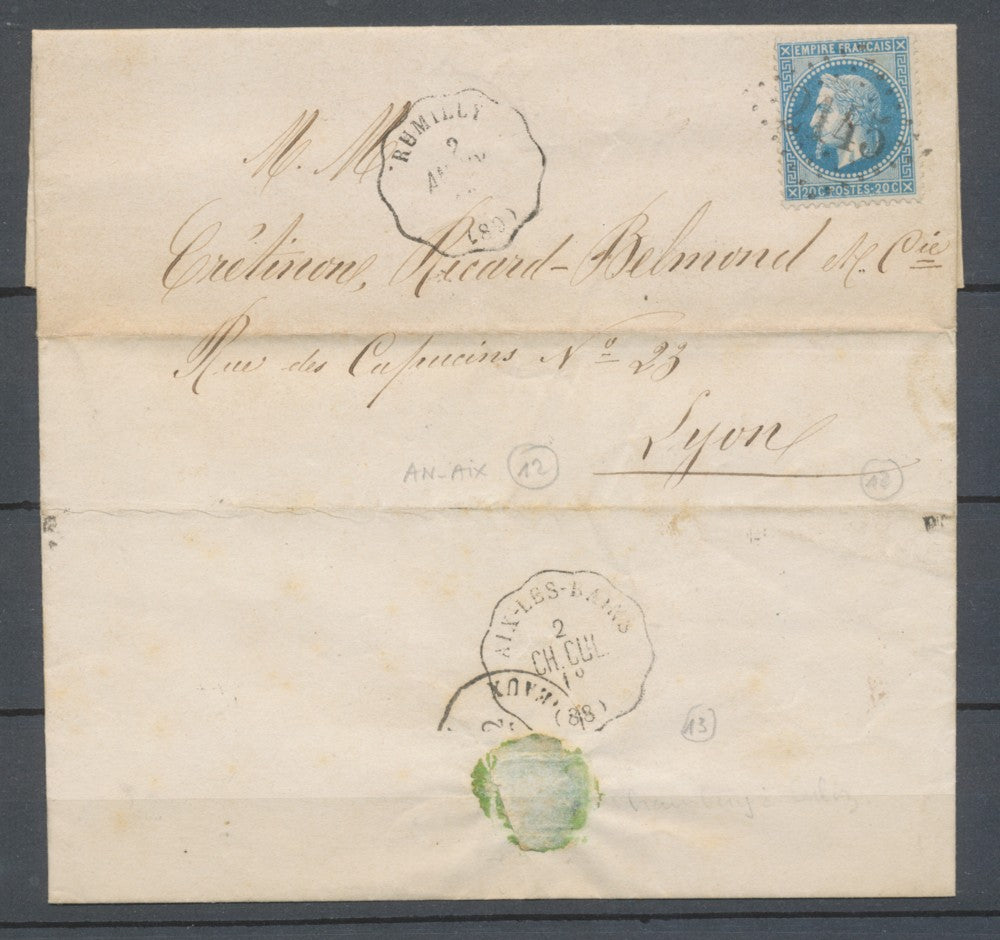 EMPIRE FRANÇAIS
20C-POSTES-20C
RUMILLY
2
(89)
M. M
Crétinon, Ricard-Belmond & Cie
Rue des Capucins No 23
Lyon
AN-AIX 12
AIX-LES-BAINS
2
CH.CUL.
(88)
2
13